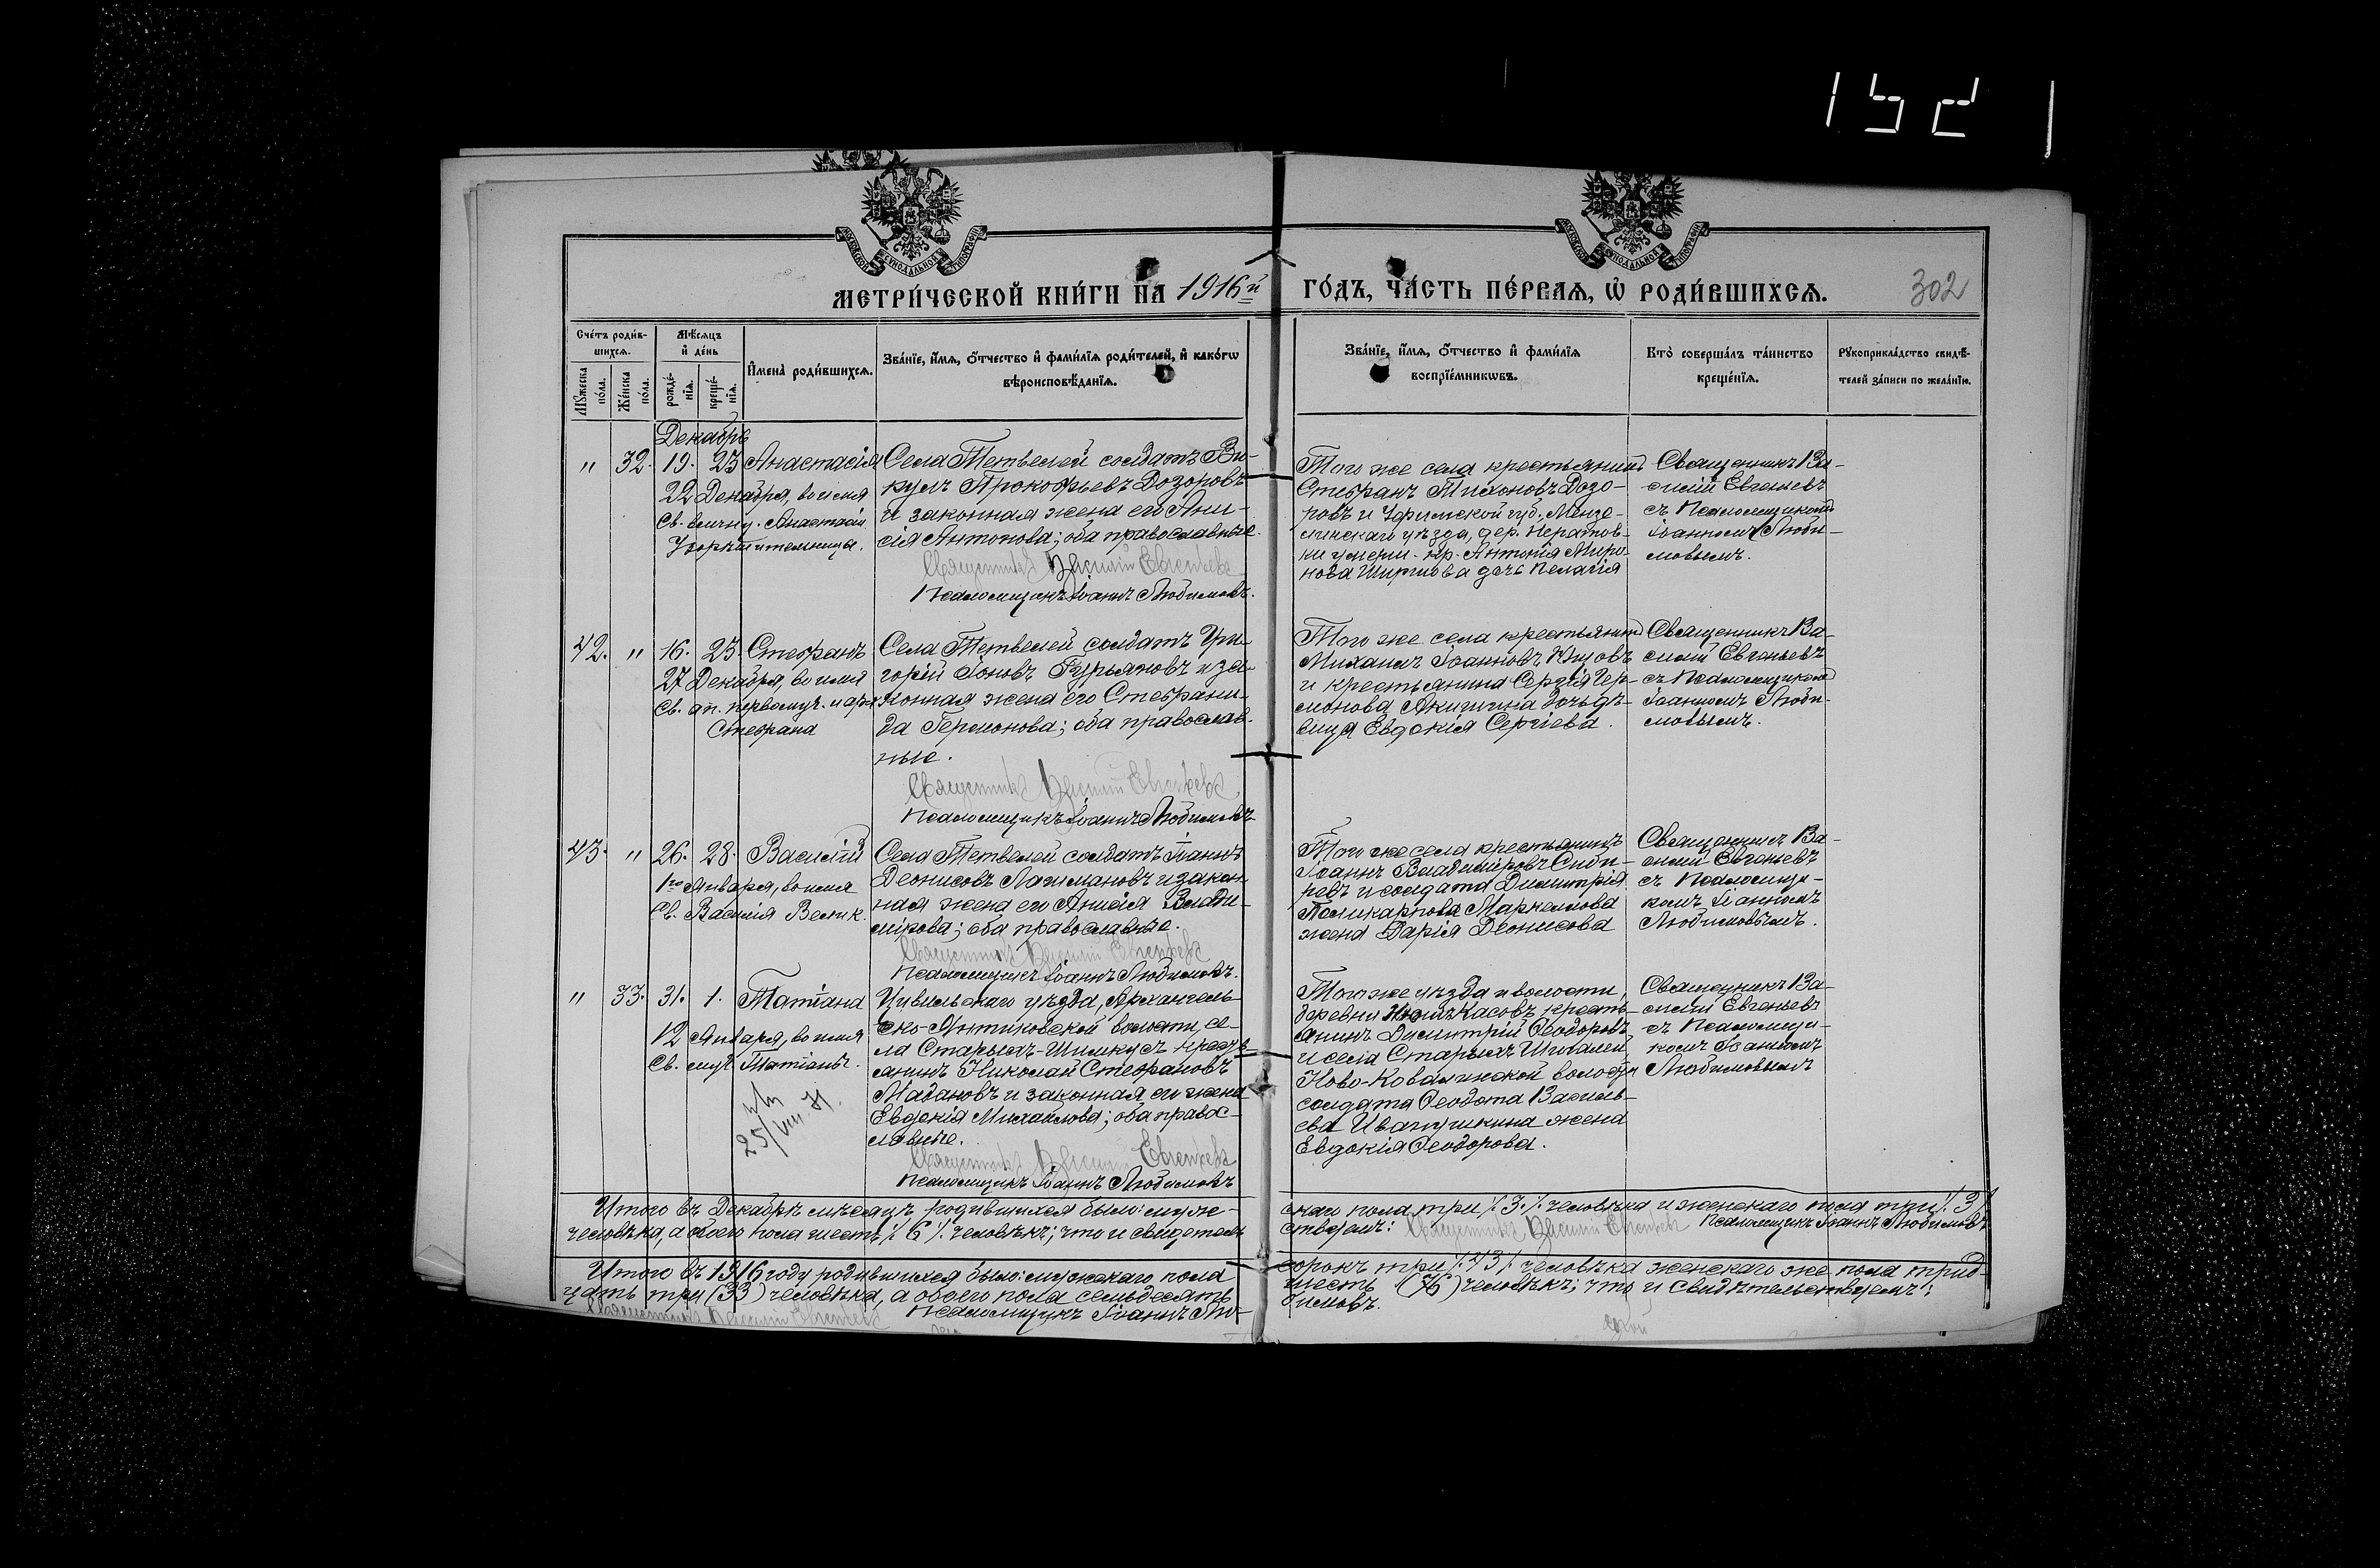 1521
МЕТРИ́ЧЕСКОЙ КНИ́ГИ НА 1916й ГО́ДЪ, ЧА́СТЬ ПЕ́РВАѦ, Ѡ РОДИ́ВШИХСѦ.
302
Сче́тъ роди́в-
шихсѧ.
Мꙋжеска по́ла.
Же́нска по́ла.
Мѣ́сѧцъ
и҆ де́нь
рожде́нїѧ.
креще́нїѧ.
И҆мена̀ роди́вшихсѧ.
Зва́нїе, и҆́мѧ, ѻ҆́тчество и҆ фами́лїѧ роди́телей, и҆ како́гѡ
вѣроисповѣ́данїѧ.
Зва́нїе, и҆́мѧ, ѻ҆́тчество и҆ фами́лїѧ
воспрїе́мникѡвъ.
Кто̀ соверша́лъ та́инство
креще́нїѧ.
Рꙋкоприкла́дство свидѣ́-
телей за́писи по жела́нїю.
Декабрь
" 32. 19. 23 Анастасія
22 Декабря, во имя
Св. велмуч. Анастасіи
Узорѣшительницы.
Села Тетвелей солдатъ Ви-
кулъ Прокофьевъ Дозоровъ
и законная жена его Ани-
сія Антонова; оба православные.
Священникъ Василий Евгеньевъ
Псаломщикъ Іоаннъ Любимовъ.
Того же села крестьянинъ
Стефанъ Тихоновъ Дозо-
ровъ и Уфимской губ. Мензе-
линскаго уѣзда, дер.
кр. Антонія Миро-
нова дочь Пелагія
Священникъ Ва-
силій Евгеньевъ
съ Псаломщикомъ
Іоанномъ Люби-
мовымъ.
42. " 16. 23. Стефанъ
27 Декабря, во имя
Св. ап. первомуч. и арх.
Стефана
Села Тетвелей солдатъ Гри-
горій Іоновъ Гурьяновъ и за-
конная жена его Стефани-
да Гермонова; оба православ-
ные.
Священникъ Василий Евгеньевъ
Псаломщикъ Іоаннъ Любимовъ
Того же села крестьянинъ
Михаилъ Іоанновъ
и крестьянина Сергія Гер-
монова дочь дѣ-
вица Евдокія Сергіева.
Священникъ Ва-
силій Евгеньевъ
съ Псаломщикомъ
Іоанномъ Люби-
мовымъ.
43. " 26. 28. Василій
1го Января, во имя
Св. Василія Велик.
Села Тетвелей солдатъ Іоаннъ
Деонисовъ и закон-
ная жена его Влади-
мірова; оба православные.
Священникъ Василий Евгеньевъ
Псаломщикъ Іоаннъ Любимовъ.
Того же села крестьянинъ
Іоаннъ Владиміровъ Сиби-
ревъ и солдата Димитрія
Поликарпова Маркелова
жена Дарія Деонисова
Священникъ Ва-
силій Евгеньевъ
съ Псаломщи-
комъ Іоанномъ
Любимовымъ.
" 33. 31. 1. Татіана
12 Января, во имя
Св. муч. Татіаны.
25/VIII 71.
Цивильскаго уѣзда, Архангель-
ско-Янтиковской волости, се-
ла Старыхъ-Шимкусъ кресть-
янинъ Николай Стефановъ
и законная его жена
Евдокія Михайлова; оба правос-
лавные.
Священникъ Василий Евгеньевъ
Псаломщикъ Іоаннъ Любимовъ
Того же уѣзда и волости,
деревни кресть-
янинъ Димитрій Ѳеодоровъ
и села Старыхъ Шигалей,
Ново-Ковалинской волости
солдата Ѳеодота Василь-
ева Ивашкина жена
Евдокія Ѳеодорова.
Священникъ Ва-
силій Евгеньевъ
съ Псаломщи-
комъ Іоанномъ
Любимовымъ
Итого въ Декабрѣ мѣсяцѣ родившихся было: муже- скаго пола три /.3./. человѣка и женскаго пола три /.3/.
человѣка, а обоего пола шесть /.6./. человѣкъ; что и свидетель ствуемъ: Священникъ Василий Евгеньевъ Псаломщикъ Іоаннъ Любимовъ
Итого въ 1916 году родившихся было: мужскаго пола сорокъ три /.43/. человѣка женскаго же пола трид-
цать три (33) человѣка, а обоего пола семьдесятъ шесть (76) человѣкъ; что и свидѣтельствуемъ:
Священникъ Василий Евгеньевъ Псаломщикъ Іоаннъ Лю- бимовъ.